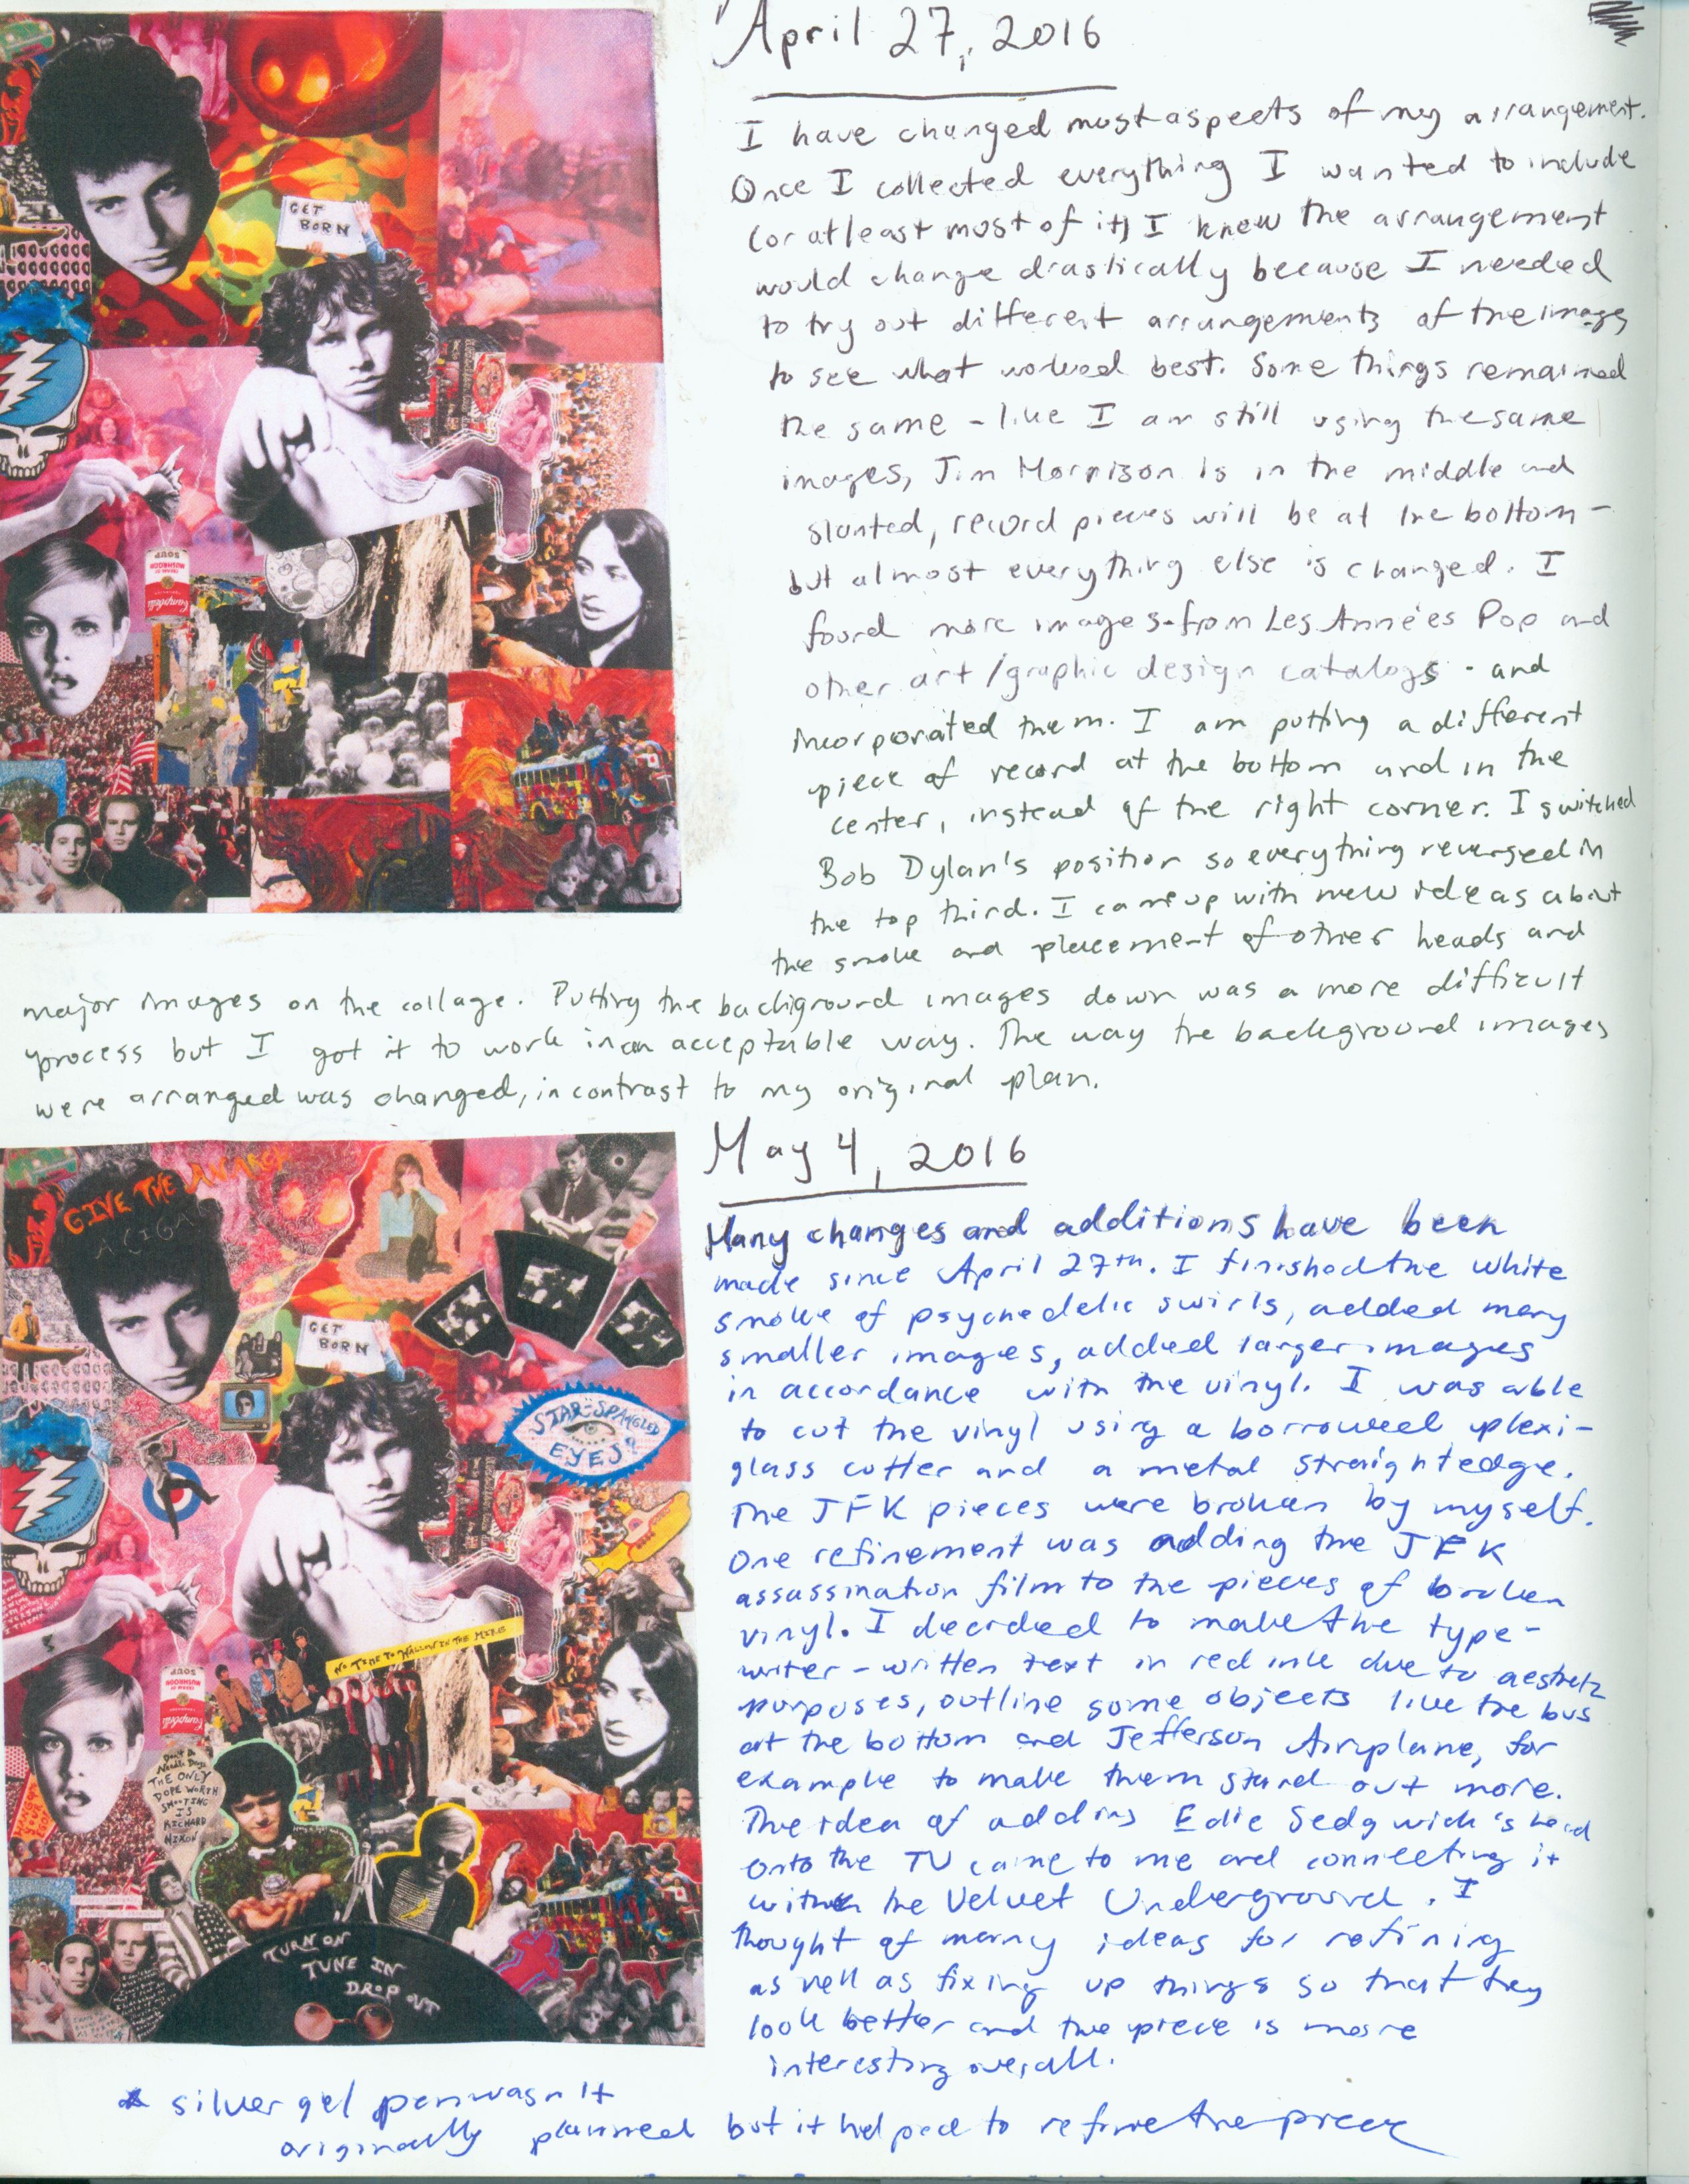 April 27, 2016
I have changed most aspects of my arrangement.
Once I collected everything I wanted to include
(or at least most of it) I knew the arrangement
would change drastically because I needed
to try out different arrangements of the images
to see what worked best. Some things remained
the same - like I am still using the same
images, Jim Morrison is in the middle and
slanted, record pieces will be at the bottom -
but almost everything else is changed. I
found more images - from Les Années Pop and
other art/graphic design catalogs - and
incorporated them. I am putting a different
piece of record at the bottom and in the
center, instead of the right corner. I switched
Bob Dylan's position so everything reversed in
the top third. I came up with new ideas about
the smoke and placement of other heads and
major images on the collage. Putting the background images down was a more difficult
process but I got it to work in an acceptable way. The way the background images
were arranged was changed, in contrast to my original plan.
GET
BORN
SOUP
MUSHROOM
Campbell's
May 4, 2016
Many changes and additions have been
made since April 27th. I finished the white
smoke of psychedelic swirls, added many
smaller images, added larger images
in accordance with the vinyl. I was able
to cut the vinyl using a borrowed plexi-
glass cutter and a metal straightedge.
The JFK pieces were broken by myself.
One refinement was adding the JFK
assassination film to the pieces of broken
vinyl. I decided to make the type-
writer-written text in red ink due to
purposes, outline some objects like the bus
at the bottom and Jefferson Airplane, for
example to make them stand out more.
The idea of adding Edie Sedgwick's head
onto the TV came to me and connecting it
with the Velvet Underground. I
thought of many ideas for refining
as well as fixing up things so that they
look better and the piece is more
interesting overall.
* silver gel pen wasn't
originally planned but it helped to refine the piece
GIVE THE ANARCH
A CIGA
GET
BORN
STAR-SPANGLED
EYES?
NO TIME TO WALLOW IN THE MIRE
SOUP
MUSHROOM
Campbell's
Don't Do
Needle Drugs
THE ONLY
DOPE WORTH
SHOOTING
IS
RICHARD
NIXON
TURN ON
TUNE IN
DROP OUT